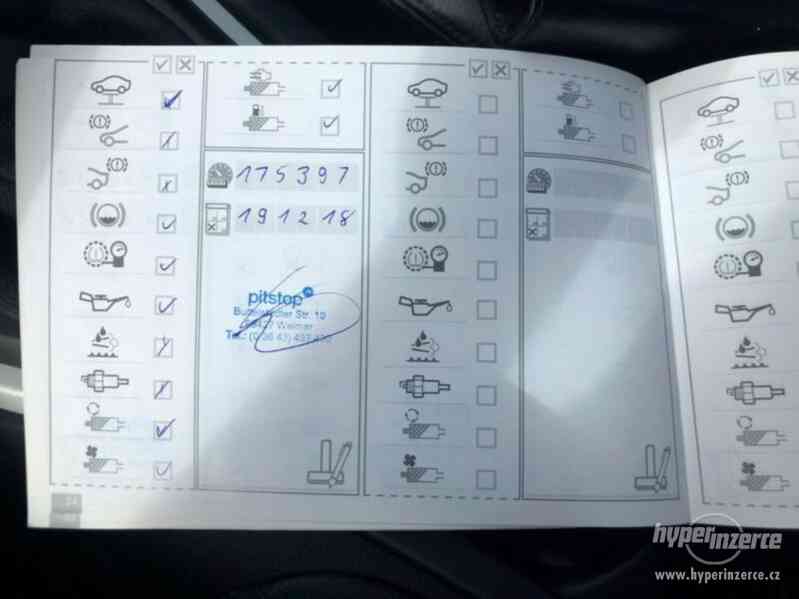 175397
19 12 18
pitstop
Buttelstedter Str. 10
99427 Weimar
Tel.: (0 36 43) 437
hyperinzerce
www.hyperinzerce.cz